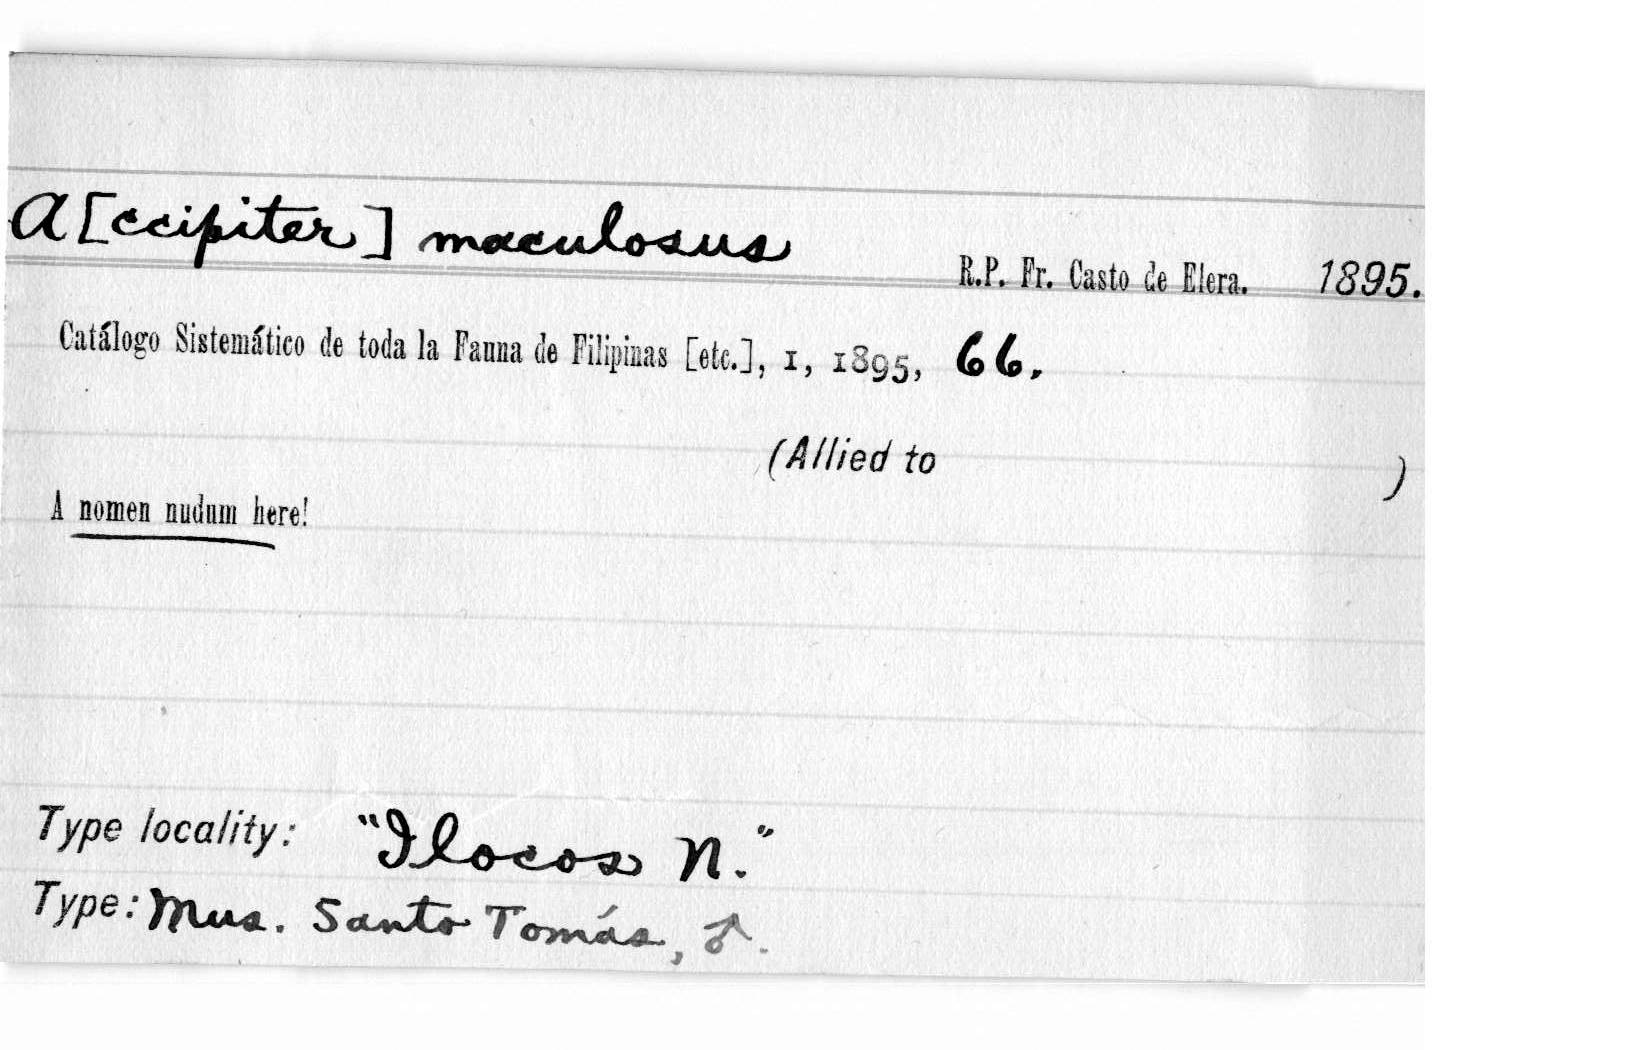 A[ccipiter] maculosus
R.P. Fr. Casto de Elera. 1895.
Catálogo Sistemático de toda la Fauna de Filipinas [etc.], 1, 1895, 66.
(Allied to )
A nomen nudum here!
Type locality: "Ilocos N."
Type: Mus. Santo Tomás, ♂.